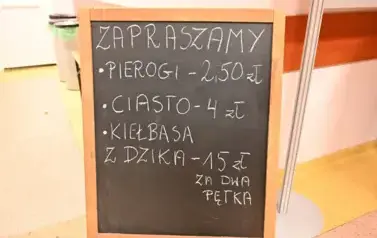 ZAPRASZAMY
• PIEROGI - 2,50 zł
• CIASTO - 4 zł
• KIEŁBASA
Z DZIKA - 15 zł
ZA DWA
PĘTKA